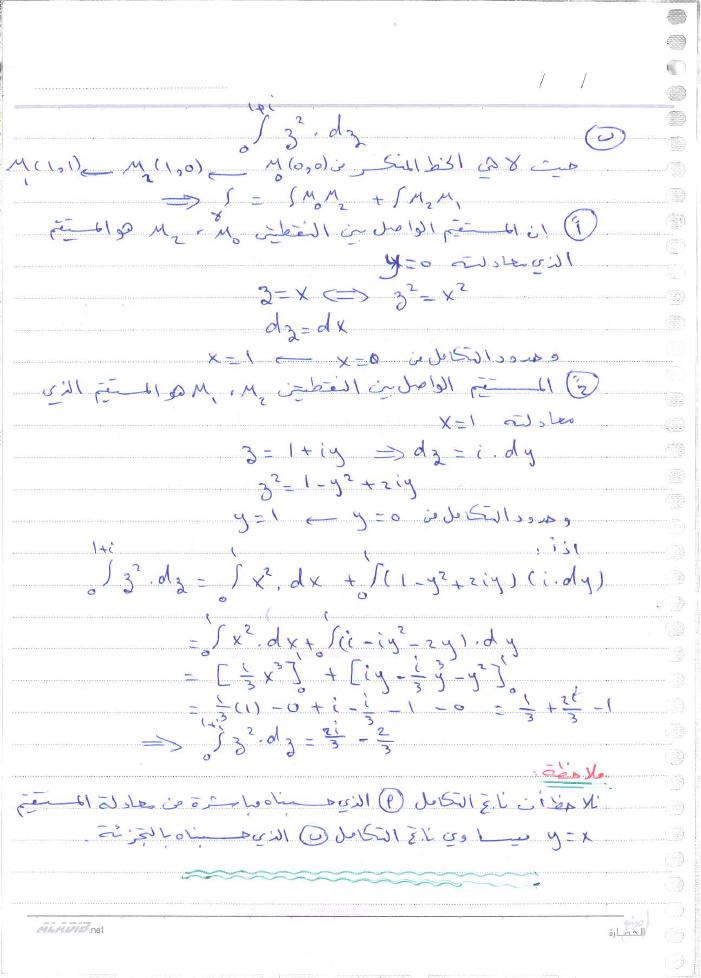 / /
ب) ₀∫¹⁺ⁱ z² · dz
حيث γ هي الخط المنكسر من M₀(0,0) ← M₂(1,0) ← M₁(1,1)
⇒ ∫γ = ∫M₀M₂ + ∫M₂M₁
1) ان المستقيم الواصل بين النقطتين M₀ ، M₂ هو المستقيم
الذي معادلته y=0
z = x ⟺ z² = x²
dz = dx
وحدود التكامل من x=0 ← x=1
2) المستقيم الواصل بين النقطتين M₂ ، M₁ هو المستقيم الذي
معادلته x=1
z = 1+iy ⇒ dz = i.dy
z² = 1-y²+2iy
وحدود التكامل من y=0 ← y=1
اذاً :
₀∫¹⁺ⁱ z² · dz = ₀∫¹ x² . dx + ₀∫¹ (1-y²+2iy) (i.dy)
= ₀∫¹ x² . dx + ₀∫¹ (i-iy²-2y) . dy
= [1/3 x³]₀¹ + [iy - i/3 y³ - y²]₀¹
= 1/3 (1) - 0 + i - i/3 - 1 - 0 = 1/3 + 2i/3 - 1
⇒ ₀∫¹⁺ⁱ z² · dz = 2i/3 - 2/3
ملاحظة:
نلاحظ أن ناتج التكامل (P) الذي حسبناه مباشرة من معادلة المستقيم
y=x يساوي ناتج التكامل (ب) الذي حسبناه بالتجزئة .
.net
الحضارة